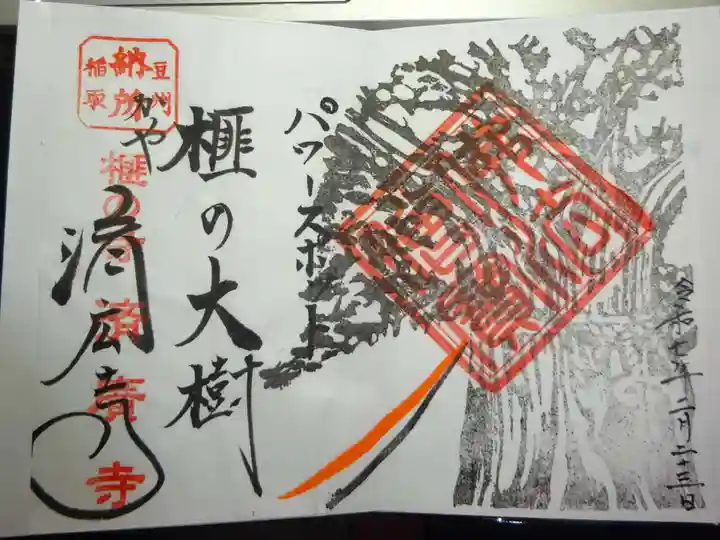 令和七年二月二十三日
パワースポット
榧の大樹
かや
豆州
納所
稲取
済広寺
榧の寺 済廣寺